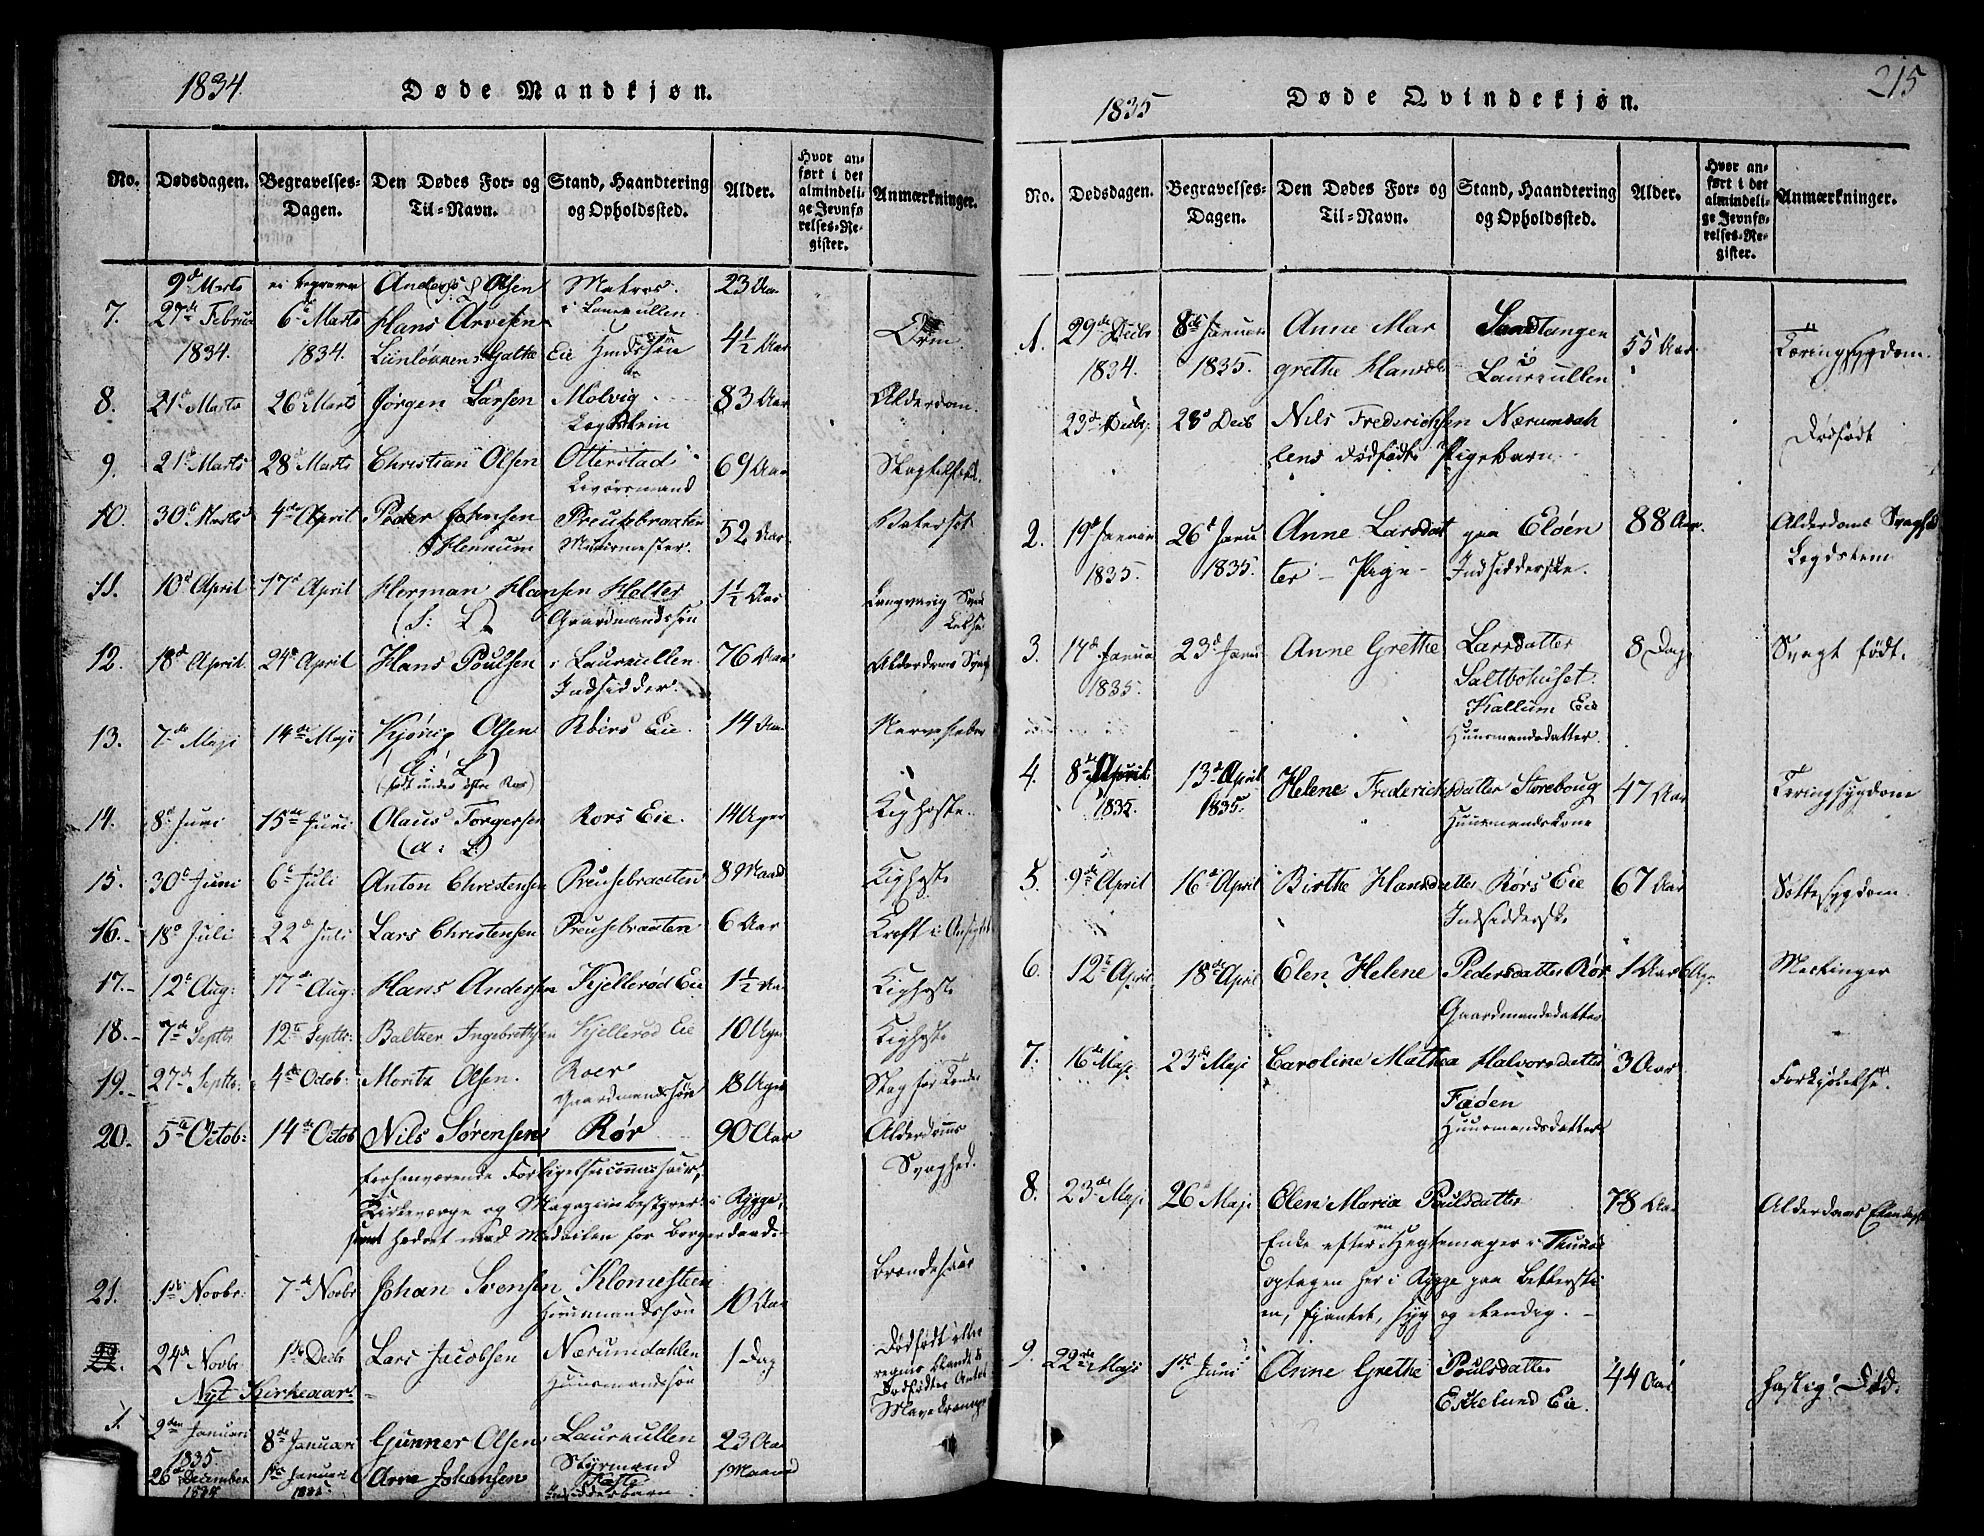 1834. Døde Mandkjøn.
No. Dødsdagen. Begravelses-Dagen. Den Dødes For- og Til-Navn. Stand, Haandtering og Opholdssted. Alder. Hvor anført i det almindelige Jevnførelses-Register. Anmærkninger.
9de Marts Anders Olsen Matros. 23 Aar
7. 27de Februar 6te Marts Hans Arvesen i Laurkullen
1834. 1834. Eie 4½ Aar Orm.
8. 21de Marts 26de Marts Jørgen Larsen Molvig 83 Aar Alderdom.
Lægdslem
9. 21de Marts 28de Marts Christian Olsen Otterstad 69 Aar
10. 30te Marts 4de April Peder Johnsen Preusebraaten 52 Aar Vatersot
Muurmester.
11. 10de April 17de April Herman Hansen Holter 1½ Aar Langvarig
Gaardmandssøn
12. 18de April 24de April Hans Poulsen i Laurkullen 76 Aar Alderdoms Svagh
Indsidder.
13. 7de Maji 14de Maji Kjønig Olsen Rörs Eie. 14 Aar Nervefeber
(født under østre Rør)
14. 8de Juni 15de Juni Olaus Torgersen Rors Eie. 14 Uger Kighoste.
15. 30te Juni 6te Juli Anton Christensen Preusebraaten 8 Maaned Kighoste
16. 18de Juli 22de Juli Lars Christensen Preusebraaten 6 Aar Kreft i Ansigtet
17. 12te Aug: 17de Aug: Hans Andersen Kjellerød Eie 1½ Aar Kighoste
18. 7de Septbr 12te Septbr: Baltzer Ingebrethsen Kjellerød Eie 10 Uger Kighoste
19. 27de Septbr: 4de Octob: Moritz Olsen. Roer 18 Uger Slag for Tænder
Gaardmandssøn
20. 5te Octob: 14de Octob Nils Sørensen Rør 90 Aar Alderdoms
Svaghed.
forhenværende Forligelsescommissair,
Kirkeværge og Magazinbestyrer i Rygge,
samt hædret med Medailen for Borgerdaad.
21. 1ste Novbr: 7de Novbr Johan Svensen Klomesteen 10 Aar Brandesaar
Huusmandssøn
22. 24de Novbr 1ste Decbr Lars Jacobsen Nærumdahlen 1 Dag Dødfødt eller
Huusmandssøn
Nyt Kirkeaar.
1. 2den Januari 8de Januari Gunner Olsen Laurkullen 23 Aar
1835 Styrmand
26de December 1ste Januari Arne Johansen 1 Maaned
1834 1835. Indsidderbarn
1835 Døde Qvindekjøn. 215
No. Dødsdagen. Begravelses-Dagen. Den Dødes For- og Til-Navn. Stand, Haandtering og Opholdssted. Alder. Hvor anført i det almindelige Jevnførelses-Register. Anmærkninger.
1. 29de Decbr 8de Januari Anne Mar Sandtangen 55 Aar Tæringssygdom.
1834. 1835. grethe Hansdtr i Laurkullen
23de Decbr: 28de Decb Nils Frederichsen Nærumdah
lens dødfødte Pigebarn. Dødfødt
2. 19de Januar 26de Janu Anne Larsdat paa Eløen 88 Aar. Alderdoms Svaghed
1835. 1835. ter - Pige - Indsidderske. Lægdslem
3. 14de Janua 23de Janu Anne Grethe Larsdatter 8 Dage Svagt født.
1835. Saltbohuset.
Kallum Eie
Huusmandsdatter.
4. 8de April 13de April Helene Frederichsdatter Storeboug 47 Aar Tæringssygdom
1835. 1835. Huusmandskone
5. 9de April 16de April Birthe Hansdatter Rörs Eie 67 Aar Sottesygdom.
Indsidderske
6. 12te April 18de April Elen Helene Pedersdatter Rör 1 Aar Meslinger
Gaardmandsdatter
7. 16de Maji 23de Maji Caroline Mathea Halvorsdatter 3 Aar Forkjølelse.
Faøen
Huusmandsdatter
8. 23de Maji 26de Maji Elen Maria Poulsdatter 78 Aar Alderdoms
Enke efter en Hegtemager i Thuusø
optagen her i Rygge paa Betlersti
en, fjantet, syg og elendig.
9. 22de Maji 1ste Juni Anne Grethe Poulsdatter 44 Aar hastig Død.
Eskelund Eie.